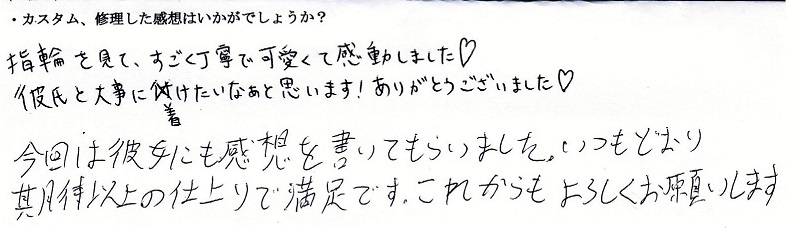 ・カスタム、修理した感想はいかがでしょうか？
指輪を見て、すごく丁寧で可愛くて感動しました♡
彼氏と大事に着けたいなぁと思います！ありがとうございました♡
今回は彼女にも感想を書いてもらいました。いつもどおり
期待以上の仕上りで満足です。これからもよろしくお願いします